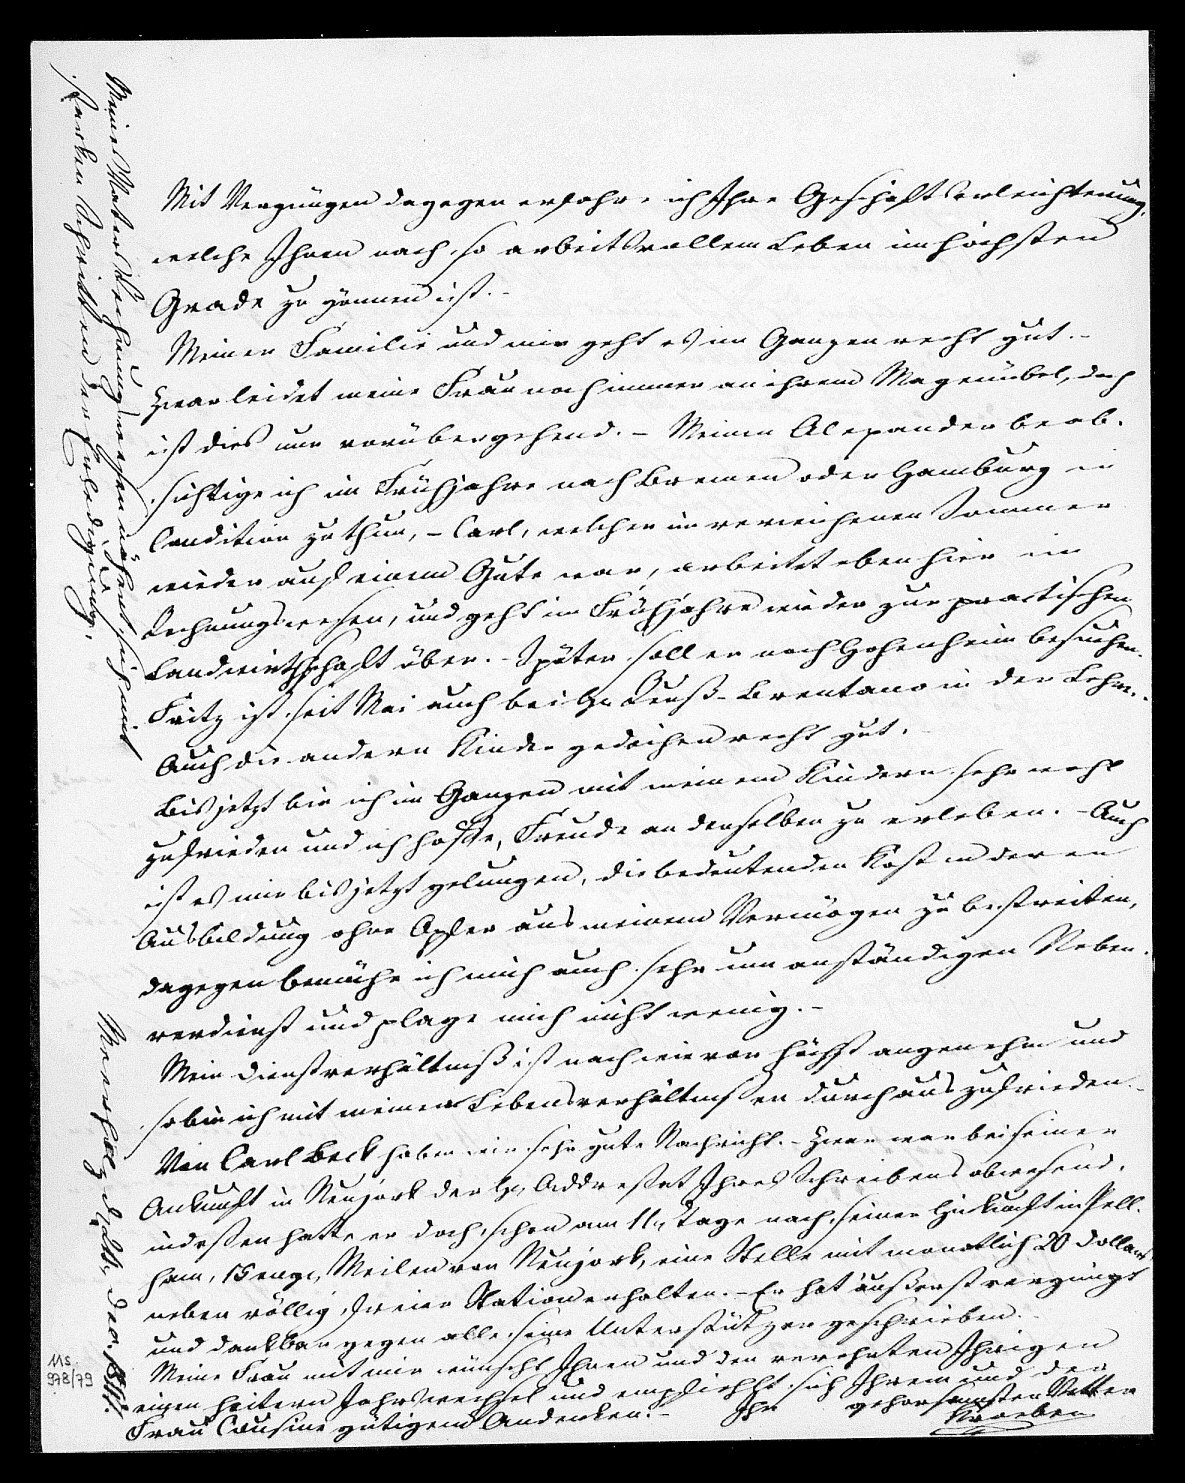 Mit Vergnügen dagegen erfahre ich Ihre Geschäftserleichterung,
welche Ihnen nach so arbeitsvollem Leben im höchsten
Grade zu gönnen ist. -
Meiner Familie und mir geht es im Ganzen recht gut. -
Zwar leidet meine Frau noch immer an ihrem Magenübel, doch
ist dies nur vorübergehend. - Meinen Alexander beab-
sichtige ich im Frühjahre nach Bremen oder Hamburg in
Condition zu thun, - Carl, welcher im verwichenen Sommer
wieder auf einem Gute war, arbeitet eben hier im
Rechnungswesen, und geht im Frühjahre wieder zur practischen
Landwirthschaft über. - Später soll er noch Hohenheim besuchen. -
Fritz ist seit Mai auch bei H. Reuß-Brentano in der Lehre. -
Auch die andern Kinder gedeihen recht gut. -
Bis jetzt bin ich im Ganzen mit meinen Kindern sehr wohl
zufrieden und ich hoffe, Freude an denselben zu erleben. - Auch
ist es mir bis jetzt gelungen, die bedeutenden Kosten deren
Ausbildung ohne Opfer aus meinem Vermögen zu bestreiten,
dagegen bemühe ich mich auch sehr um anständigen Neben-
verdienst und plage mich nicht wenig. -
Mein Dienstverhältniß ist nach wie vor höchst angenehm und
so bin ich mit meinen Lebensverhältnißen durchaus zufrieden. -
Von Carl Beck haben wir sehr gute Nachricht. - Zwar war bei seiner
Ankunft in Neujork der H. Addressat Ihres Schreibens abwesend,
indessen hatte er doch schon am 11n Tage nach seiner Hinkunft in Pell-
ham, 15 engl. Meilen von Neujork, eine Stelle mit monatlich 20 Dollars
neben völlig freier Station erhalten. - Er hat äußerst vergnügt
und dankbar gegen alle seine Unterstützer geschrieben. -
Meine Frau mit mir wünscht Ihnen und den verehrten Ihrigen
einen heitern Jahrswechsel und empfiehlt sich Ihrem und der
Frau Cousine gütigem Andenken. -
Ihr gehorsamster Vetter
Meines Vaters Rechnungswesen nähert sich mit
starken Schritten der Erledigung.
Meerholz d. Dec.
11s
978/79